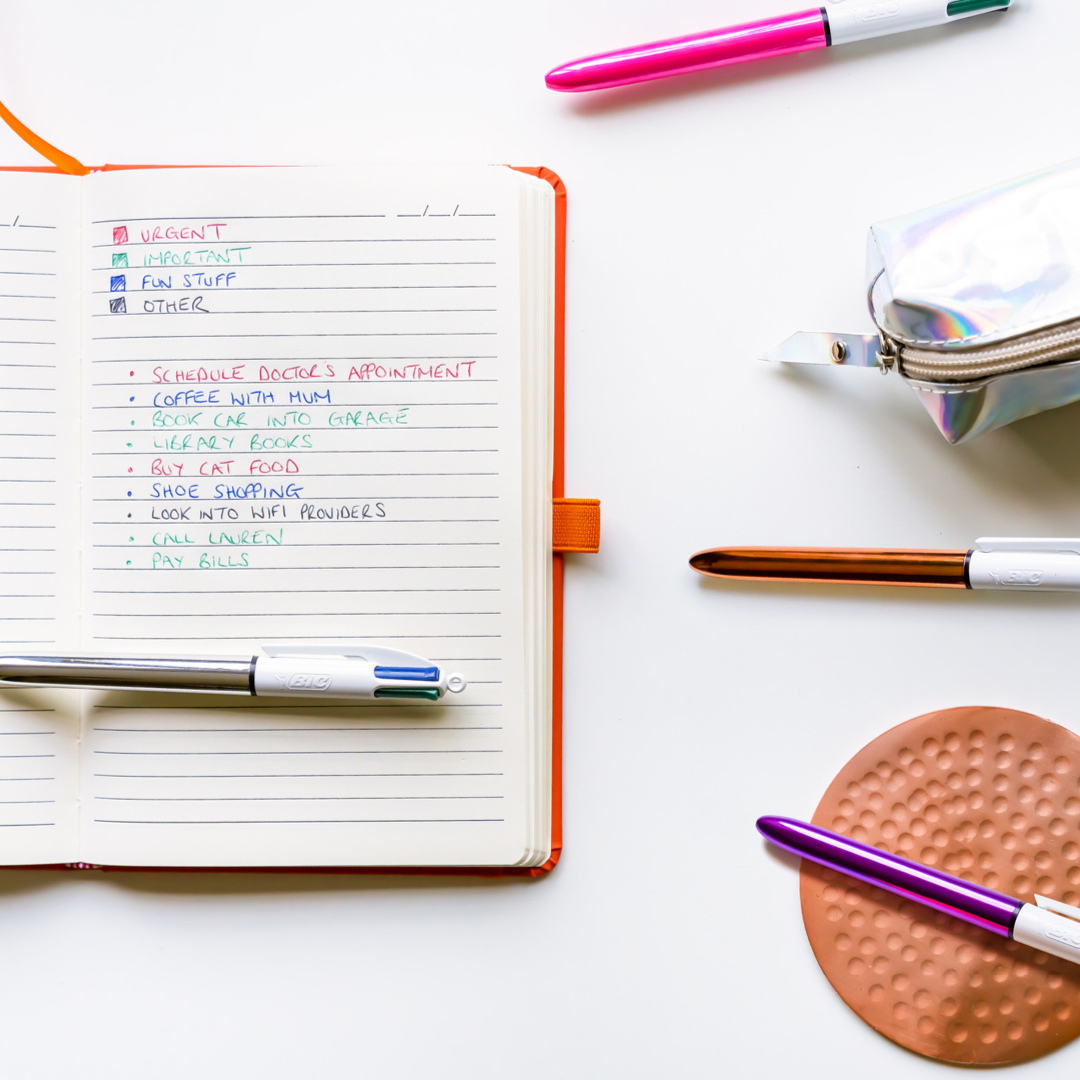 URGENT
IMPORTANT
FUN STUFF
OTHER
• SCHEDULE DOCTOR'S APPOINTMENT
• COFFEE WITH MUM
• BOOK CAR INTO GARAGE
• LIBRARY BOOKS
• BUY CAT FOOD
• SHOE SHOPPING
• LOOK INTO WIFI PROVIDERS
• CALL LAUREN
• PAY BILLS
BIC
BIC
BIC
BIC